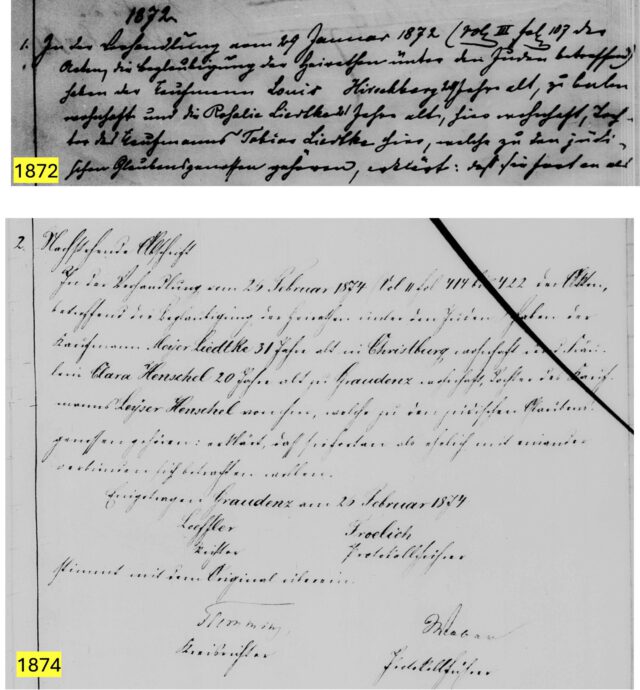 1872.
1. In der Verhandlung vom 29 Januar 1872 (vol III fol 107 der
Acten, die Beglaubigung der Heirathen unter den Juden betreffend)
haben der Kaufmann Louis Hirschberg 29 Jahre alt, zu Berlin
wohnhaft und die Rosalie Liedtke Jahre alt, hier wohnhaft, Toch-
ter des Kaufmanns Tobias Liedtke hier, welche zu den jüdi-
schen Glaubensgenossen gehören, erklärt: daß sie fortan als
1872
2. Nachstehende Abschrift
In der Verhandlung vom 25 Februar 1874 (Vol II fol 414 bis 422 der Akten,
betreffend die Beglaubigung der Heirathen unter den Juden) haben der
Kaufmann Meier Liedtke 31 Jahre alt in Christburg wohnhaft und Fräu-
lein Clara Henschel 20 Jahre alt zu Graudenz wohnhaft, Tochter des Kauf-
manns Leyser Henschel von hier, welche zu den jüdischen Glaubens-
genossen gehören: erklärt, daß sie fortan als ehelich mit einander
verbunden sich betrachten wollen.
Eingetragen Graudenz am 25 Februar 1874
Loeffler Froelich
Richter Protokollführer
stimmt mit dem Original überein.
Weber
Kreisrichter Protokollführer
1874